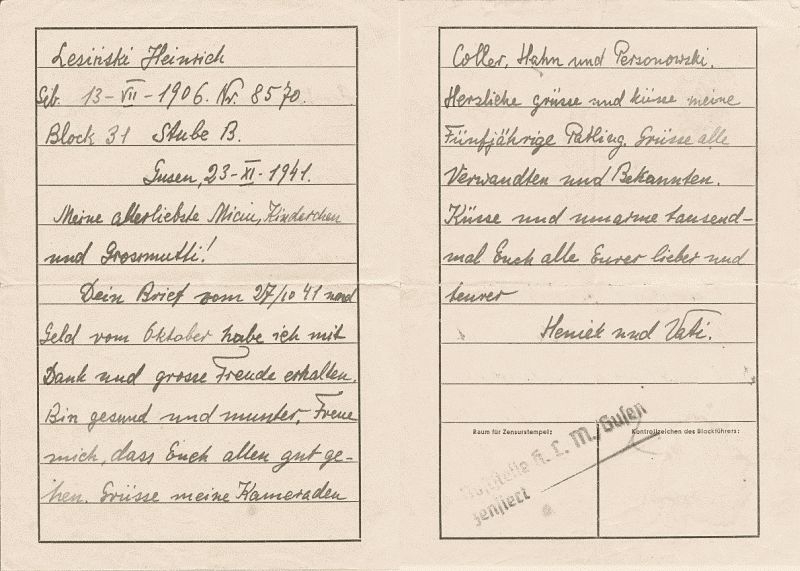 Lesiński Heinrich
Geb. 13-VII-1906. Nr. 8570.
Block 31 Stube B.
Gusen, 23-XI-1941.
Meine allerliebste Miciu, Kinderchen
und Grossmutti!
Dein Brief vom 27/10 41 und
Geld vom Oktober habe ich mit
Dank und grosse Freude erhalten.
Bin gesund und munter, Freue
mich, dass Euch allen gut ge-
hen. Grüsse meine Kameraden
Coller, Hahn und Personowski.
Herzliche grüsse und küsse meine
Fünfjährige Patling. Grüsse alle
Verwandten und Bekannten.
Küsse und umarme tausend-
mal Euch alle Eurer lieber und
teurer
Heniek und Vati.
Raum für Zensurstempel:
Kontrollzeichen des Blockführers:
Poststelle K. L. M./Gusen
zensiert